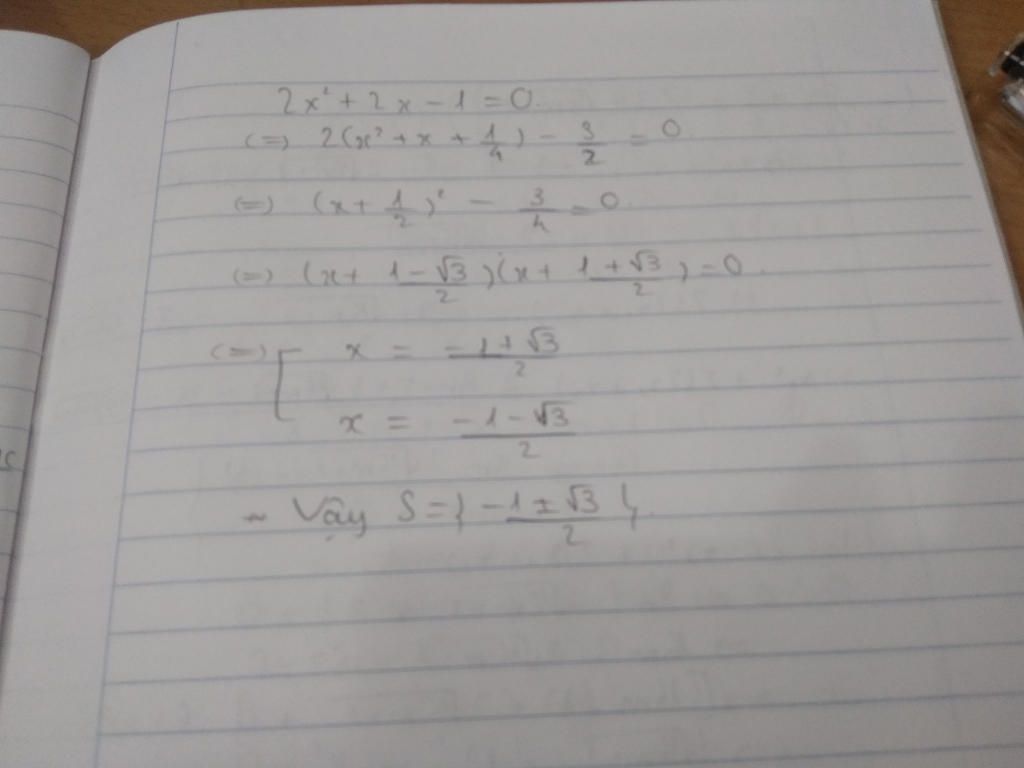 2x² + 2x - 1 = 0.
(=) 2(x² + x + 1/4) - 3/2 = 0
(=) (x + 1/2)² - 3/4 = 0
(=) (x + (1-√3)/2)(x + (1+√3)/2) = 0.
(=) [ x = (-1+√3)/2
x = (-1-√3)/2
~ Vậy S = { (-1±√3)/2 }.